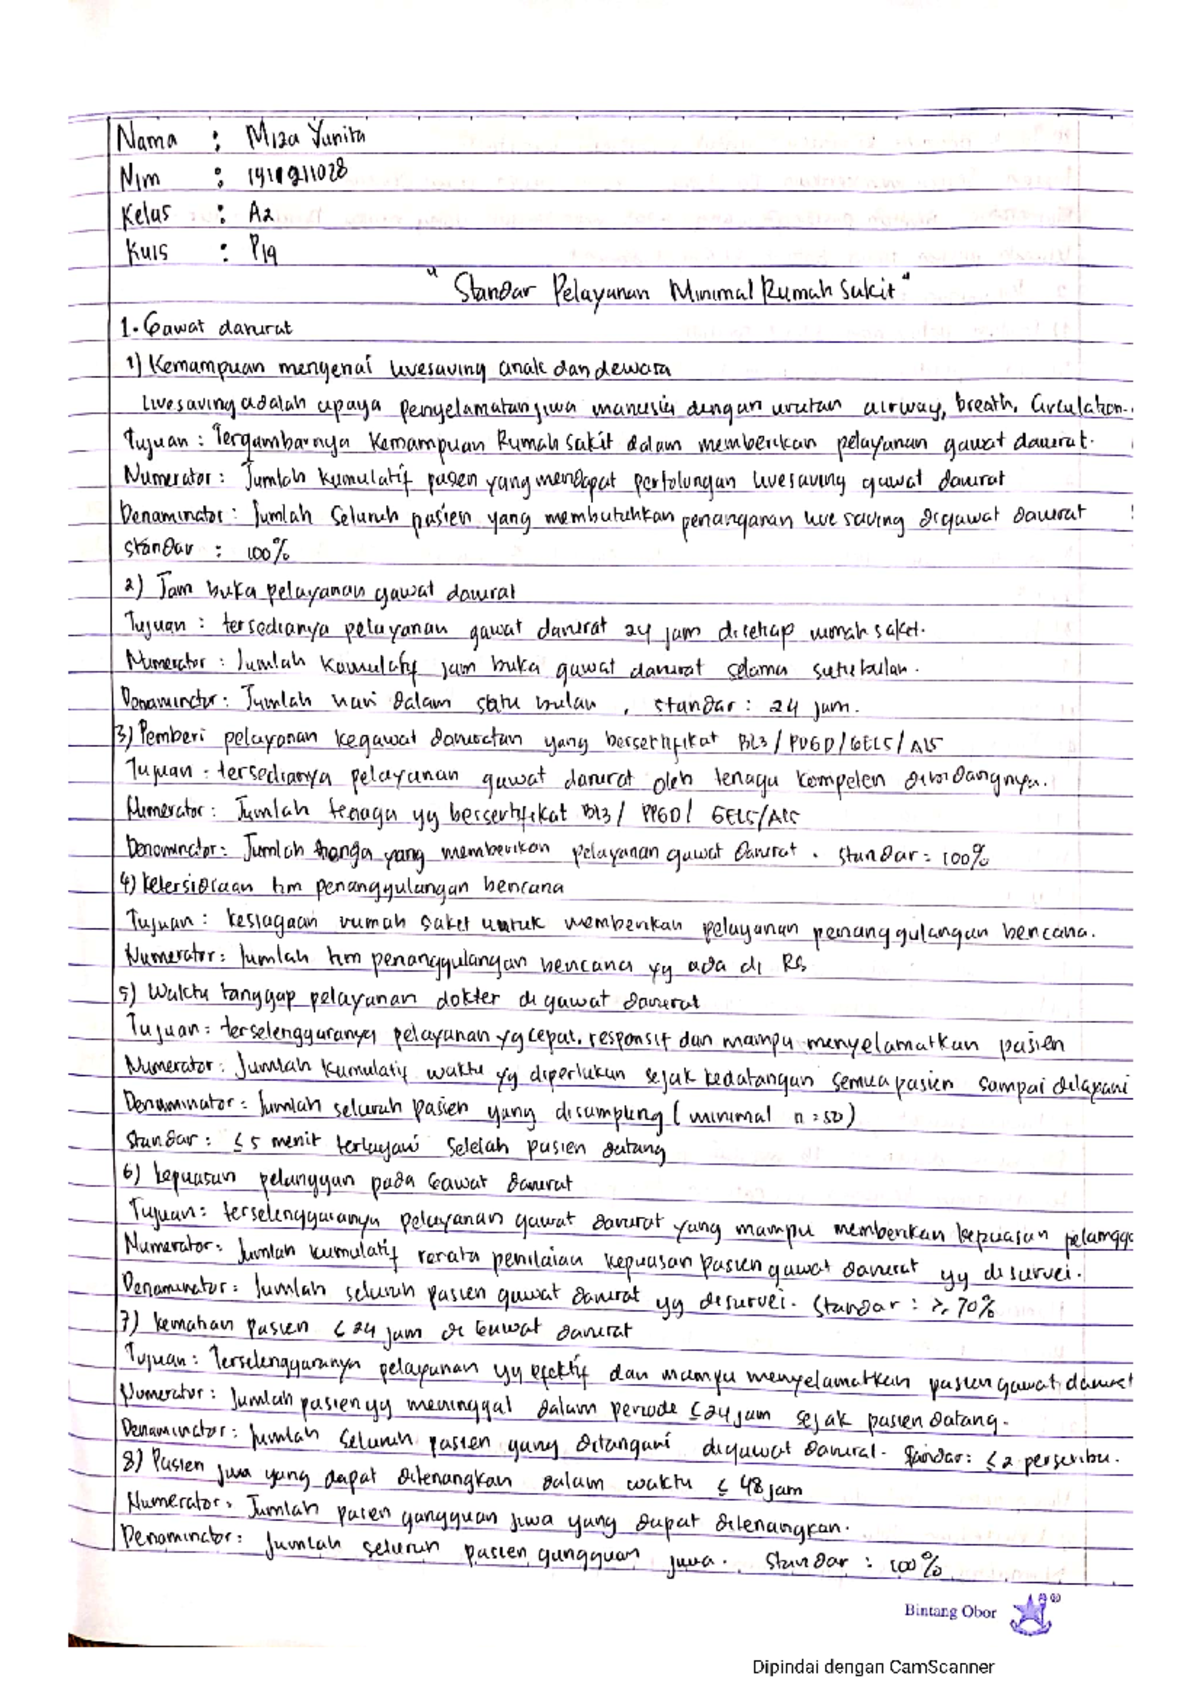 Nama : Miza Yunita
Nim : 1911211028
Kelas : A2
Kuis : P19
" Standar Pelayanan Minimal Rumah Sakit "
1. Gawat darurat
1) Kemampuan mengenai livesaving anak dan dewasa
Livesaving adalah upaya penyelamatan jiwa manusia dengan urutan airway, breath, Circulation..
Tujuan : Tergambarnya Kemampuan Rumah sakit dalam memberikan pelayanan gawat darurat.
Numerator : Jumlah kumulatif pasien yang mendapat pertolongan livesaving gawat darurat
Denaminator : Jumlah Seluruh pasien yang membutuhkan penanganan live saving digawat darurat
Standar : 100%
2) Jam buka pelayanan gawat darurat
Tujuan : tersedianya pelayanan gawat darurat 24 jam disetiap rumah saket.
Numerator : Jumlah Kumulatif jam buka gawat darurat selama satu bulan.
Denaminator : Jumlah hari dalam satu bulan , standar : 24 jam.
3) Pemberi pelayanan kegawat daruratan yang bersertifikat BL3 / PPGD / GELS / ALS
Tujuan : tersedianya pelayanan gawat darurat oleh tenaga kompeten dibidangnya.
Numerator : Jumlah tenaga yg bersertifikat BL3 / PPGD / GELS/ALS
Denominator : Jumlah tenaga yang memberikan pelayanan gawat darurat . standar = 100%
4) Ketersidiaan tim penanggulangan bencana
Tujuan : kesiagaan rumah saket untuk memberikan pelayanan penanggulangan bencana.
Numerator : Jumlah tim penanggulangan bencana yg ada di RS
5) Waktu tanggap pelayanan dokter di gawat darurat
Tujuan : terselenggaranya pelayanan yg cepat, responsif dan mampu menyelamatkan pasien
Numerator : Jumlah Kumulatif waktu yg diperlukan sejak kedatangan semua pasien sampai dilayani
Denaminator : Jumlah seluruh pasien yang disampling ( minimal n = 50 )
Standar : ≤ 5 menit terlayani setelah pasien datang
6) Kepuasan pelanggan pada Gawat darurat
Tujuan : terselenggaranya pelayanan gawat darurat yang mampu memberikan kepuasan pelangga
Numerator : Jumlah kumulatif rerata penilaian kepuasan pasien gawat darurat yg disurvei.
Denaminator : Jumlah seluruh pasien gawat darurat yg disurvei. Standar : ≥ 70%
7) kematian pasien ≤ 24 jam di Gawat darurat
Tujuan : Terselenggaranya pelayanan yg efektif dan mampu menyelamatkan pasien gawat darurat
Numerator : Jumlah pasien yg meninggal dalam periode ≤ 24 jam sejak pasien datang.
Denaminator : Jumlah seluruh pasien yang ditangani digawat darurat. Standar : ≤ 2 perseribu.
8) Pasien jiwa yang dapat ditenangkan dalam waktu ≤ 48 jam
Numerator : Jumlah pasien gangguan jiwa yang dapat ditenangkan.
Denominator : Jumlah seluruh pasien gangguan jiwa. Standar : 100%
Bintang Obor
Dipindai dengan CamScanner